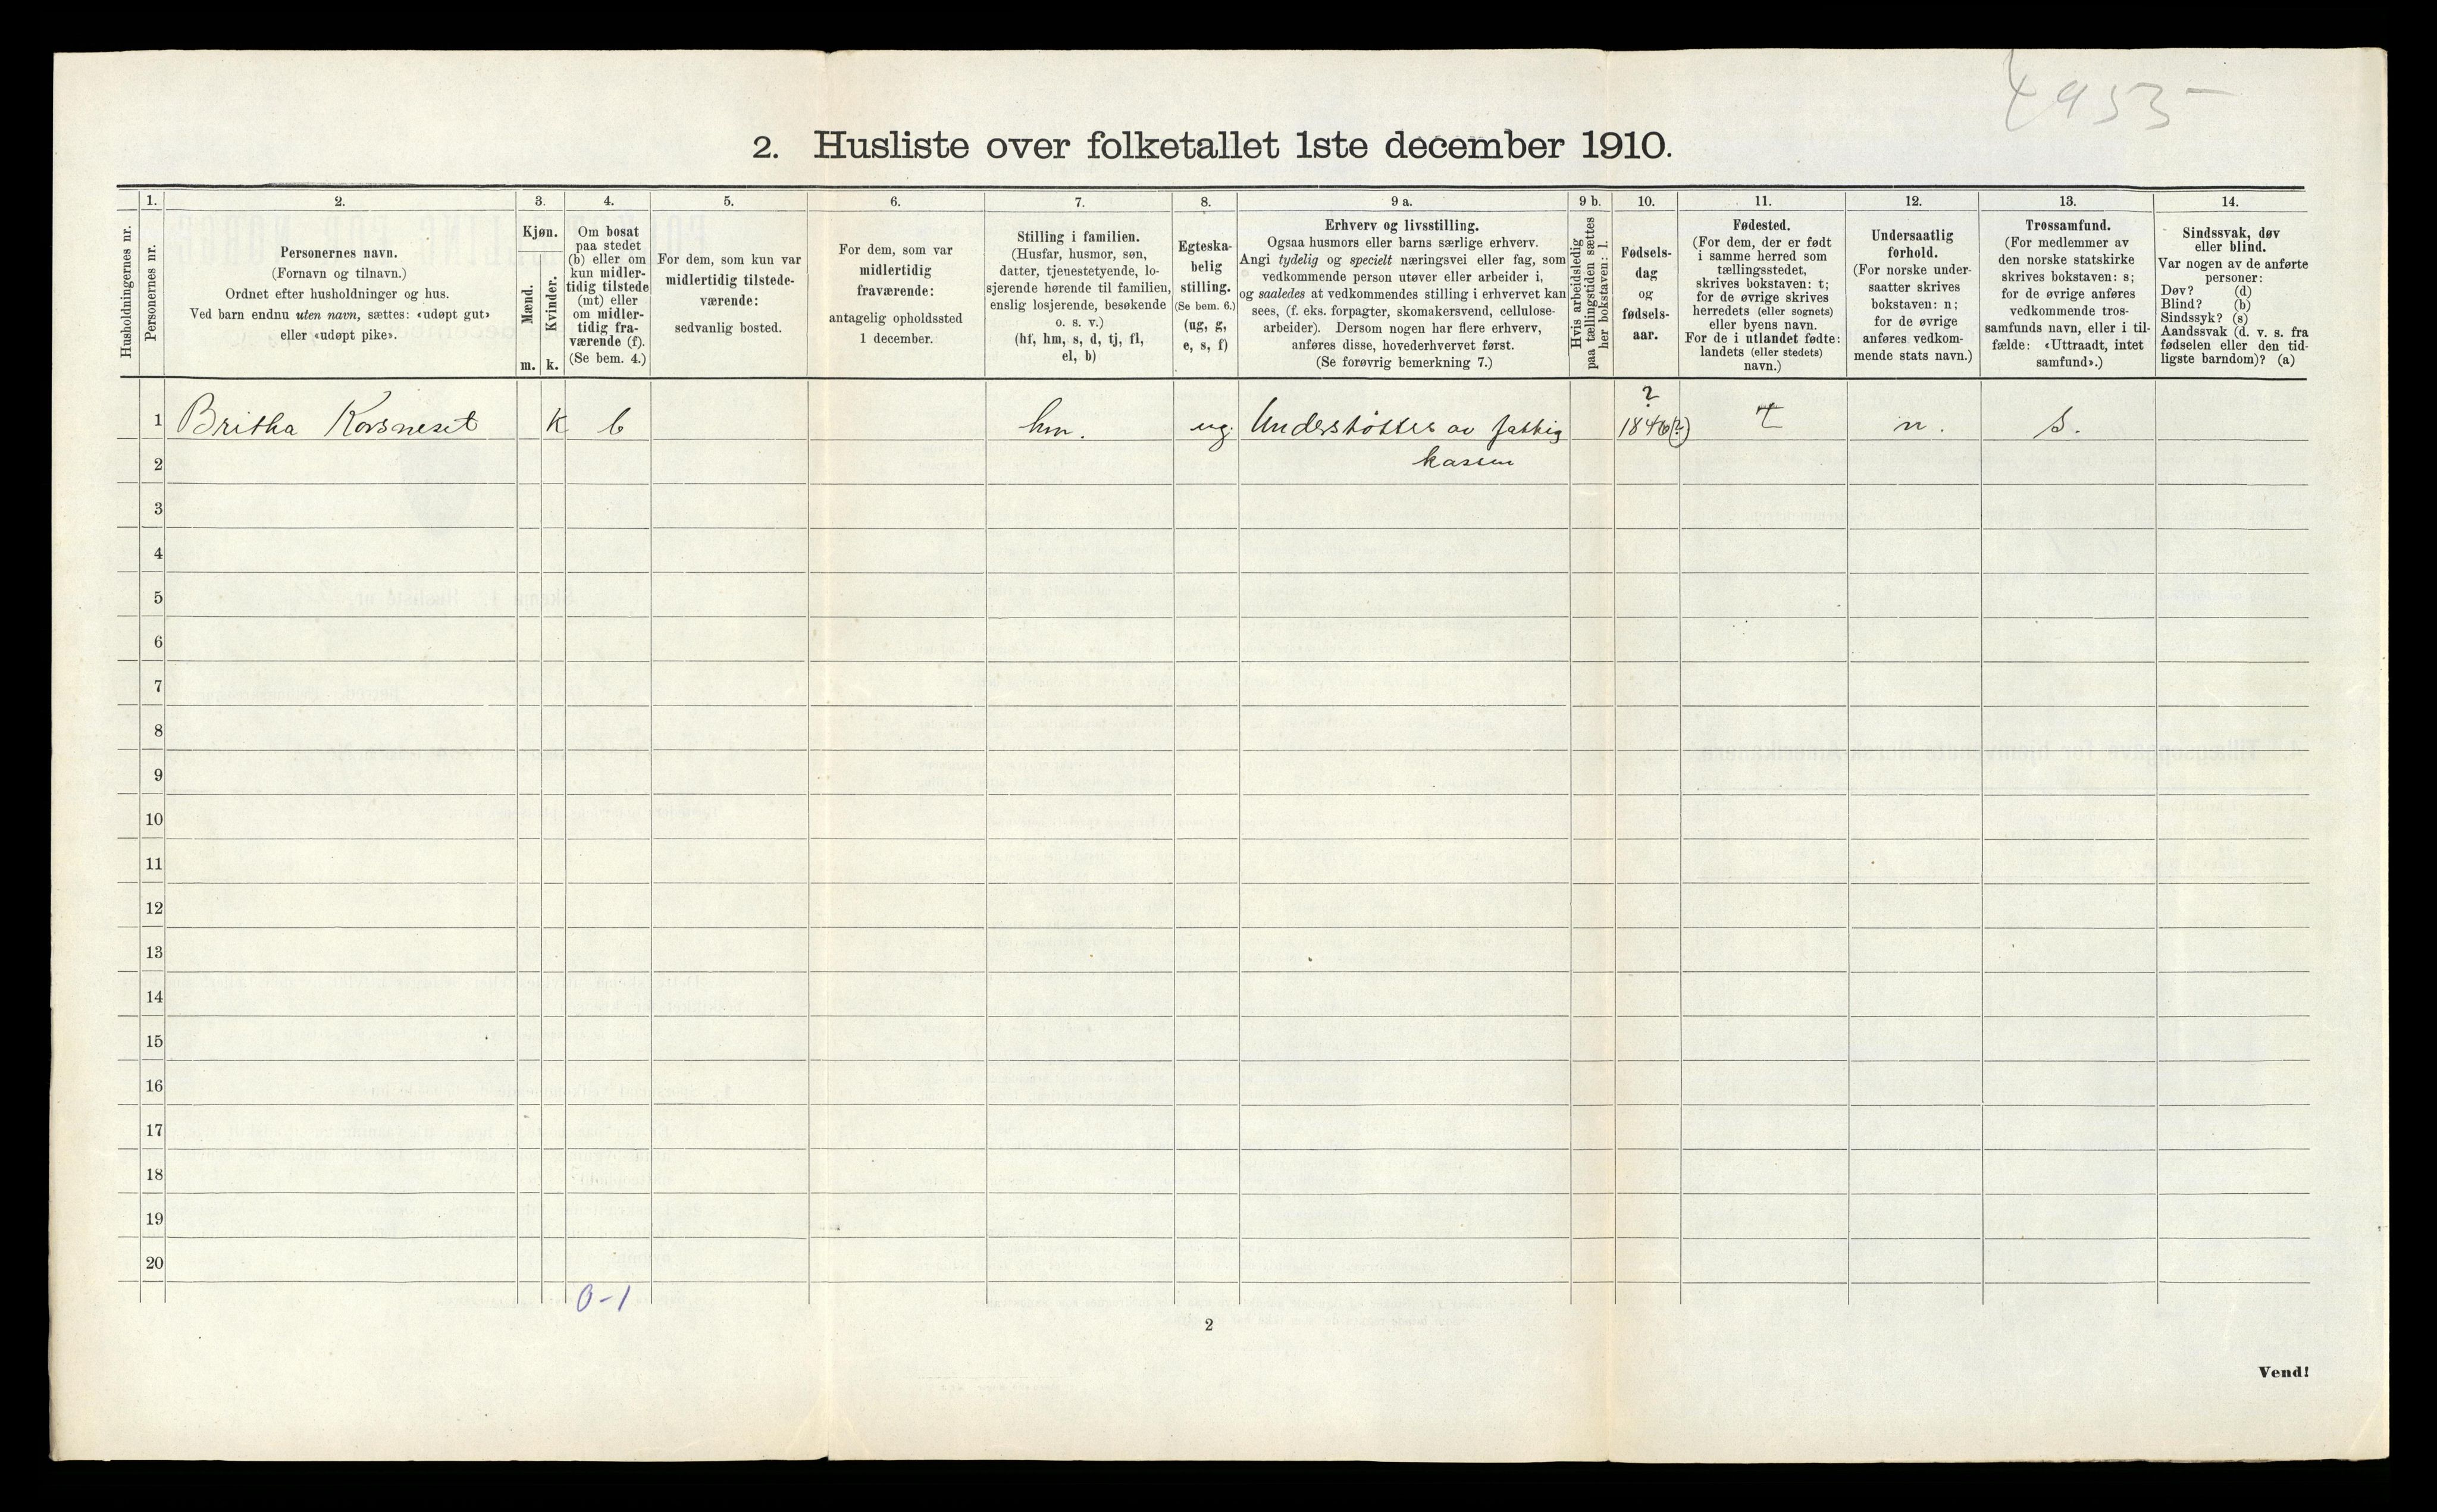 4953
2. Husliste over folketallet 1ste december 1910.
1. 2. 3. 4. 5. 6. 7. 8. 9 a. 9 b. 10. 11. 12. 13. 14.
Husholdningernes nr.
Personernes nr.
Personernes navn.
(Fornavn og tilnavn.)
Ordnet efter husholdninger og hus.
Ved barn endnu uten navn, sættes: «udøpt gut»
eller «udøpt pike».
Kjøn.
Mænd.
Kvinder.
m. k.
Om bosat
paa stedet
(b) eller om
kun midler-
tidig tilstede
(mt) eller
om midler-
tidig fra-
værende (f).
(Se bem. 4.)
For dem, som kun var
midlertidig tilstede-
værende:
sedvanlig bosted.
For dem, som var
midlertidig
fraværende:
antagelig opholdssted
1 december.
Stilling i familien.
(Husfar, husmor, søn,
datter, tjenestetyende, lo-
sjerende hørende til familien,
enslig losjerende, besøkende
o. s. v.)
(hf, hm, s, d, tj, fl,
el, b)
Egteska-
belig
stilling.
(Se bem. 6.)
(ug, g,
e, s, f)
Erhverv og livsstilling.
Ogsaa husmors eller barns særlige erhverv.
Angi tydelig og specielt næringsvei eller fag, som
vedkommende person utøver eller arbeider i,
og saaledes at vedkommendes stilling i erhvervet kan
sees, (f. eks. forpagter, skomakersvend, cellulose-
arbeider). Dersom nogen har flere erhverv,
anføres disse, hovederhvervet først.
(Se forøvrig bemerkning 7.)
Hvis arbeidsledig
paa tællingstiden sættes
her bokstaven: l.
Fødsels-
dag
og
fødsels-
aar.
Fødested.
(For dem, der er født
i samme herred som
tællingsstedet,
skrives bokstaven: t;
for de øvrige skrives
herredets (eller sognets)
eller byens navn.
For de i utlandet fødte:
landets (eller stedets)
navn.)
Undersaatlig
forhold.
(For norske under-
saatter skrives
bokstaven: n;
for de øvrige
anføres vedkom-
mende stats navn.)
Trossamfund.
(For medlemmer av
den norske statskirke
skrives bokstaven: s;
for de øvrige anføres
vedkommende tros-
samfunds navn, eller i til-
fælde: «Uttraadt, intet
samfund».)
Sindssvak, døv
eller blind.
Var nogen av de anførte
personer:
Døv? (d)
Blind? (b)
Sindssyk? (s)
Aandssvak (d. v. s. fra
fødselen eller den tid-
ligste barndom)? (a)
?
1 Britha Korsneset K b hm. ug. Understöttes av fattig 1846(?) t n. s.
2 kassen
3
4
5
6
7
8
9
10
11
12
13
14
15
16
17
18
19
20
0-1
2
Vend!